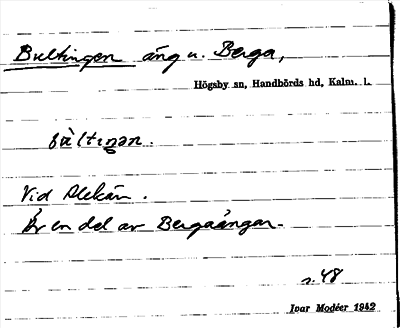 Bultingen äng u. Berga,
Högsby sn, Handbörds hd, Kalm. l.
Vid Alekån.
Är en del av Bergaängar.
s. 48
Ivar Modéer 1942